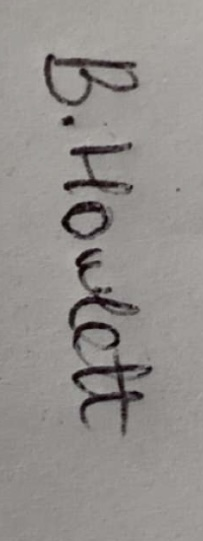 B. Howlett